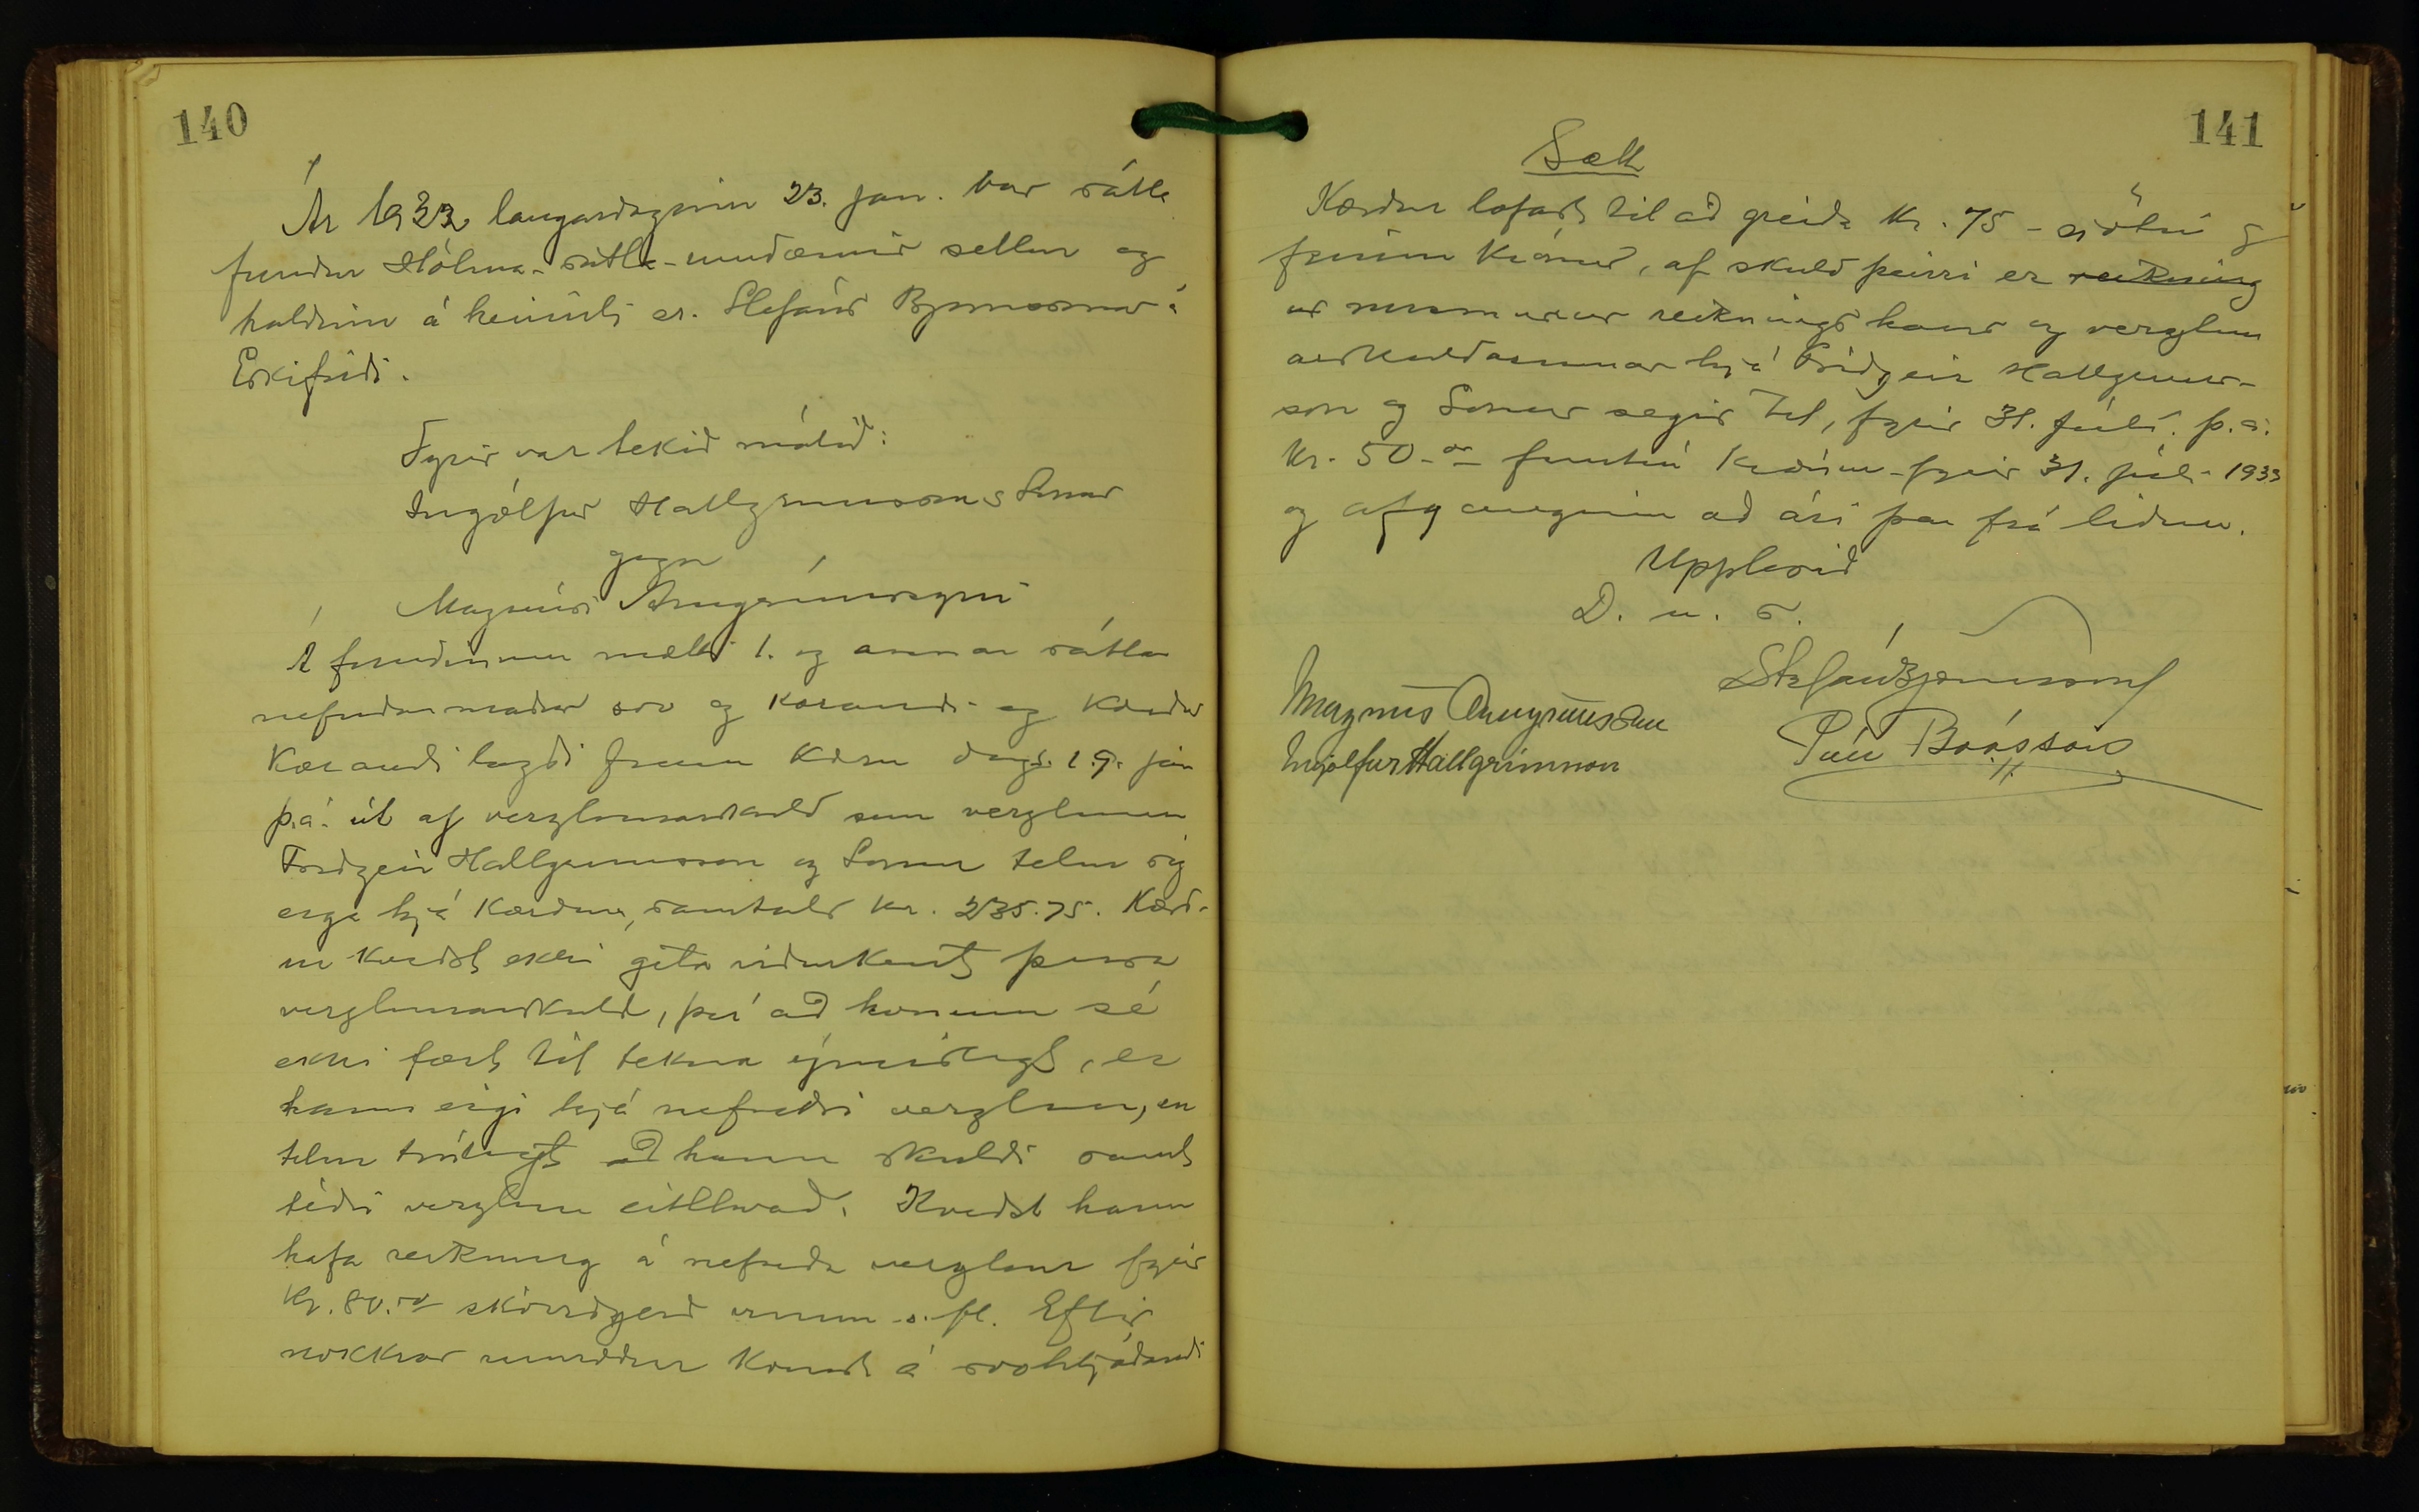 140
Ár 1932 laugardaginn 23. jan. var sátta
fundur Hólma-sátta-umdæmis settur og
haldinn á heimili sr. Stefáns Björnssonar á
Eskifirði.
Fyrir var tekið málið:
Ingólfur Hallgrímsson
gegn
Magnúsi Arngrímssyni
Á fundinum mætti 1. og annar sátta
nefndarmaður svo og kærandi og kærður
Kærandi lagði fram kæru dags. 19. jan
þ.á. út af verzlunarskuld sem verzlunin
Friðgeir Hallgrímsson og Sonur telur sig
eiga hjá kærðum, samtals kr. 235.75. Kærð-
ur kveðst ekki geta viðurkent þessa
verzlunarskuld, því að honum sé
ekki fært til tekna ýmislegt, er
hann eigi hjá nefndri verzlun, en
telur trúlegt að hann skuldi samt
téðri verzlun eitthvað. Kveðst hann
hafa reikning á nefnda verzlun fyrir
Kr. 80.00 o. fl. Eftir
nokkrar umræður komst á svohljóðandi
141
Sætt
Kærður lofast til að greiða kr. 75 - sjötíu og
fimm krónur, af skuld þeirri er reikning
ur reiknings hans og verzlun
arskuldarinnar hjá Friðgeir Hallgríms-
son og Sonur segir til, fyrir 31. júlí. þ.á.
Kr. 50 - fimtíu krónur fyrir 31. júlí 1933
og afganginn að ári þar frá liðnu.
Upplesið
D. u. s.
Stefán Björnsson
Magnús Arngrímsson
Páll Bóasson
Ingólfur Hallgrímsson